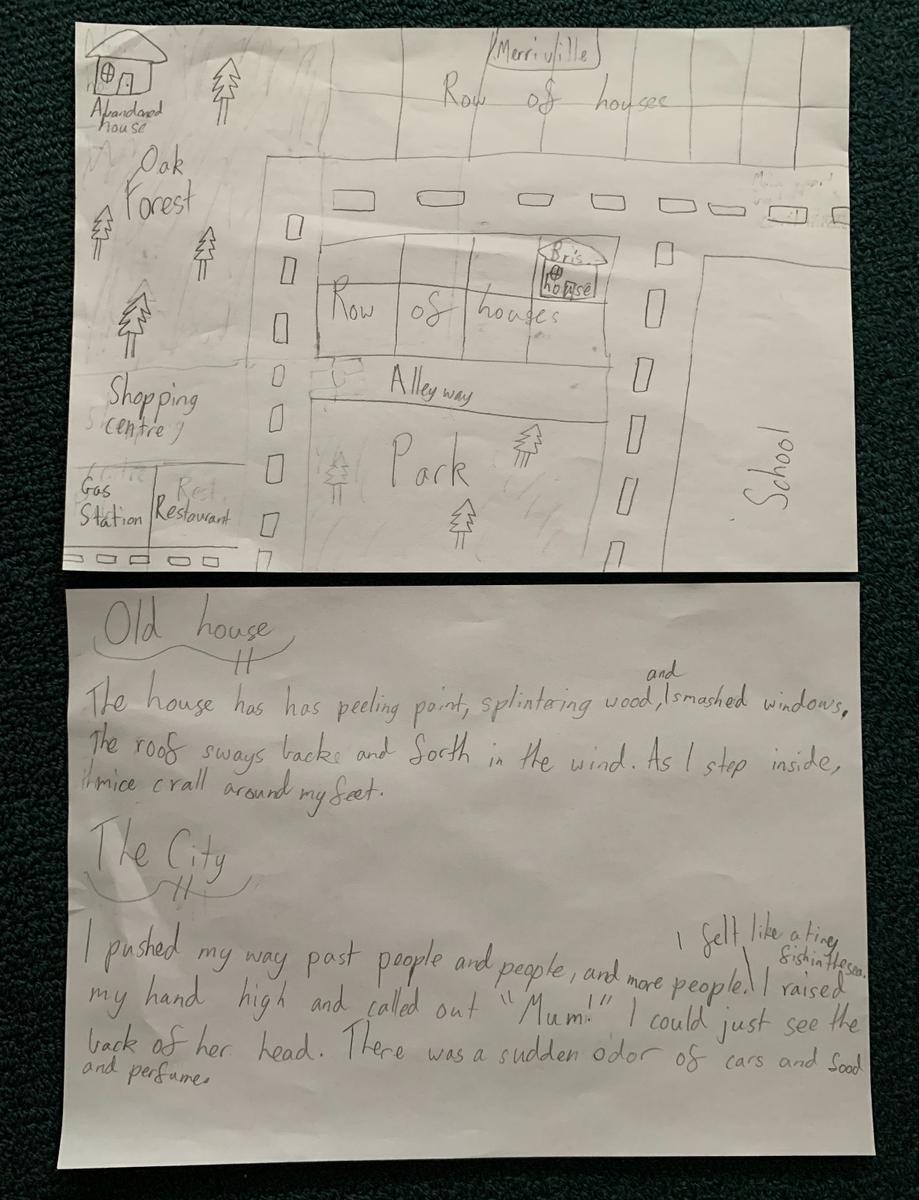 Merriville
Row of houses
Abandoned
house
Oak
Forest
Bri's
house
Row of houses
Alleyway
Shopping
centre
Park
School
Gas
Station
Restaurant
Old house
The house has has peeling paint, splintering wood, and smashed windows.
The roof sways backs and forth in the wind. As I step inside,
mice crall around my feet.
The City
I pushed my way past people and people, and more people. I felt like a tiny fish in the sea. I raised
my hand high and called out "Mum!" I could just see the
back of her head. There was a sudden odor of cars and food
and perfume.